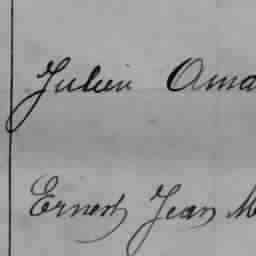 Julien Ama
Ernest Jean M